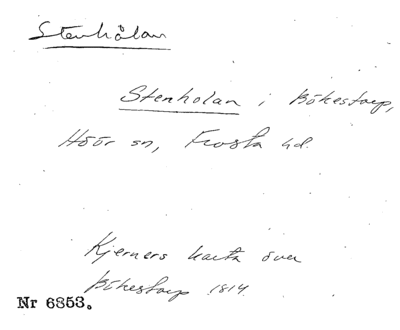 Stenhålan
Stenholan i Bökestorp,
Höör sn, Frosta hd.
Kjerners karta över
Bökestorp 1814.
Nr 6853.